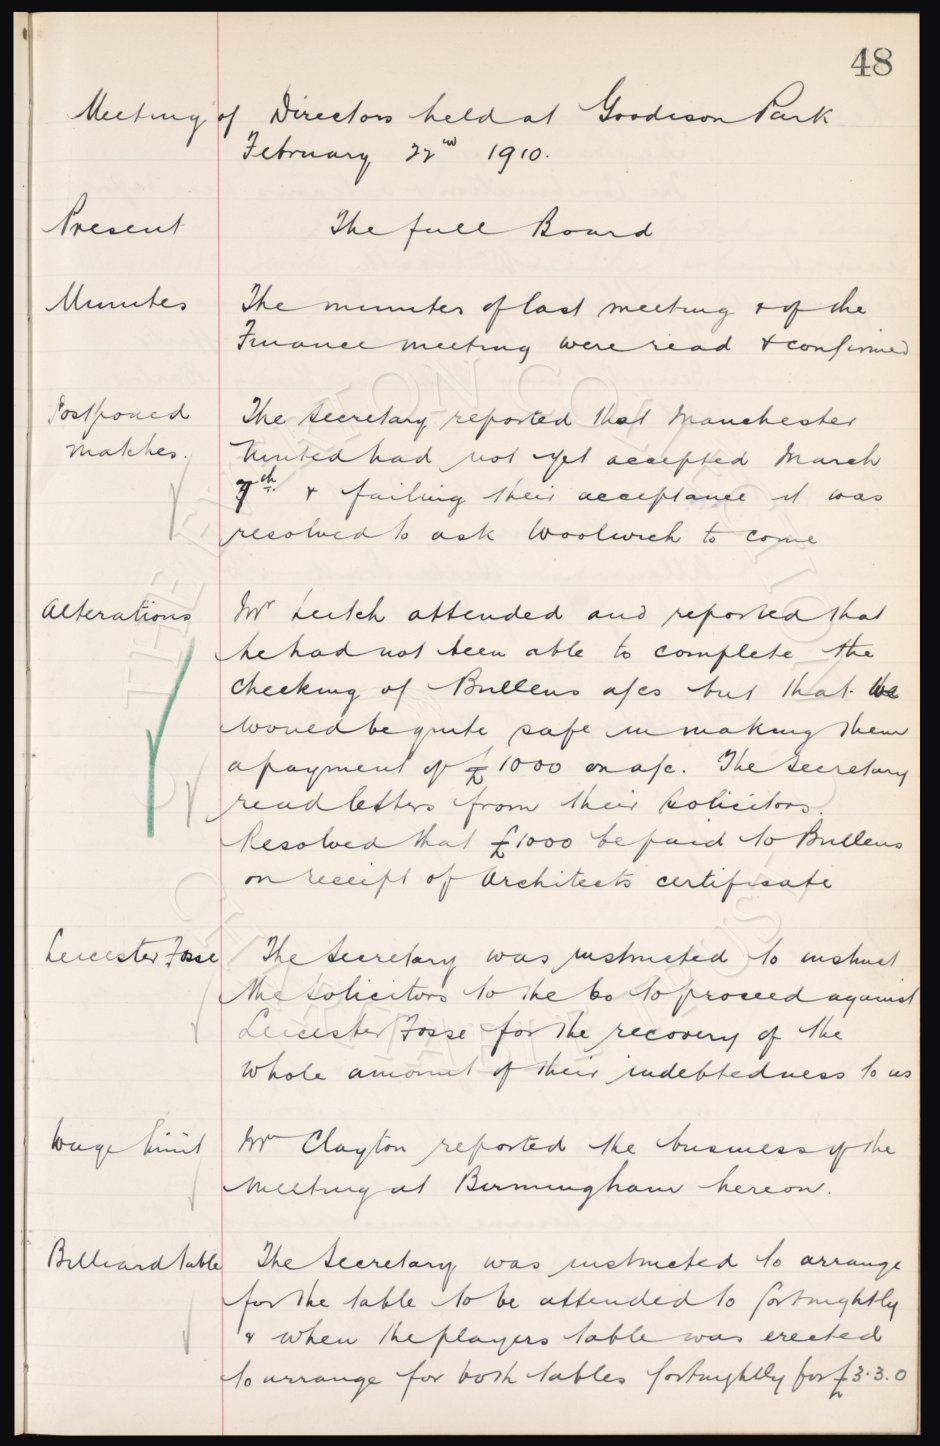 48
Meeting of Directors held at Goodison Park
February 22nd 1910.
Present The full Board
Minutes The minutes of last meeting & of the
Finance meeting were read & confirmed
Postponed The Secretary reported that Manchester
matches. United had not yet accepted March
7th & failing their acceptance it was
resolved to ask Woolwich to come
Alterations Mr Leitch attended and reported that
he had not been able to complete the
checking of Bullens a/cs but that we
would be quite safe in making them
a payment of £1000 on a/c. The Secretary
read letters from their solicitors.
Resolved that £1000 be paid to Bullens
on receipt of Architects certificate
Leicester Fosse The Secretary was instructed to instruct
the solicitors to the Co to proceed against
Leicester Fosse for the recovery of the
whole amount of their indebtedness to us
Wage limit Mr Clayton reported the business of the
meeting at Birmingham hereon.
Billiard table The Secretary was instructed to arrange
for the table to be attended to fortnightly
& when the players table was erected
to arrange for both tables fortnightly for £3.3.0
THE EVERTON COLLECTION
CHARITABLE TRUST